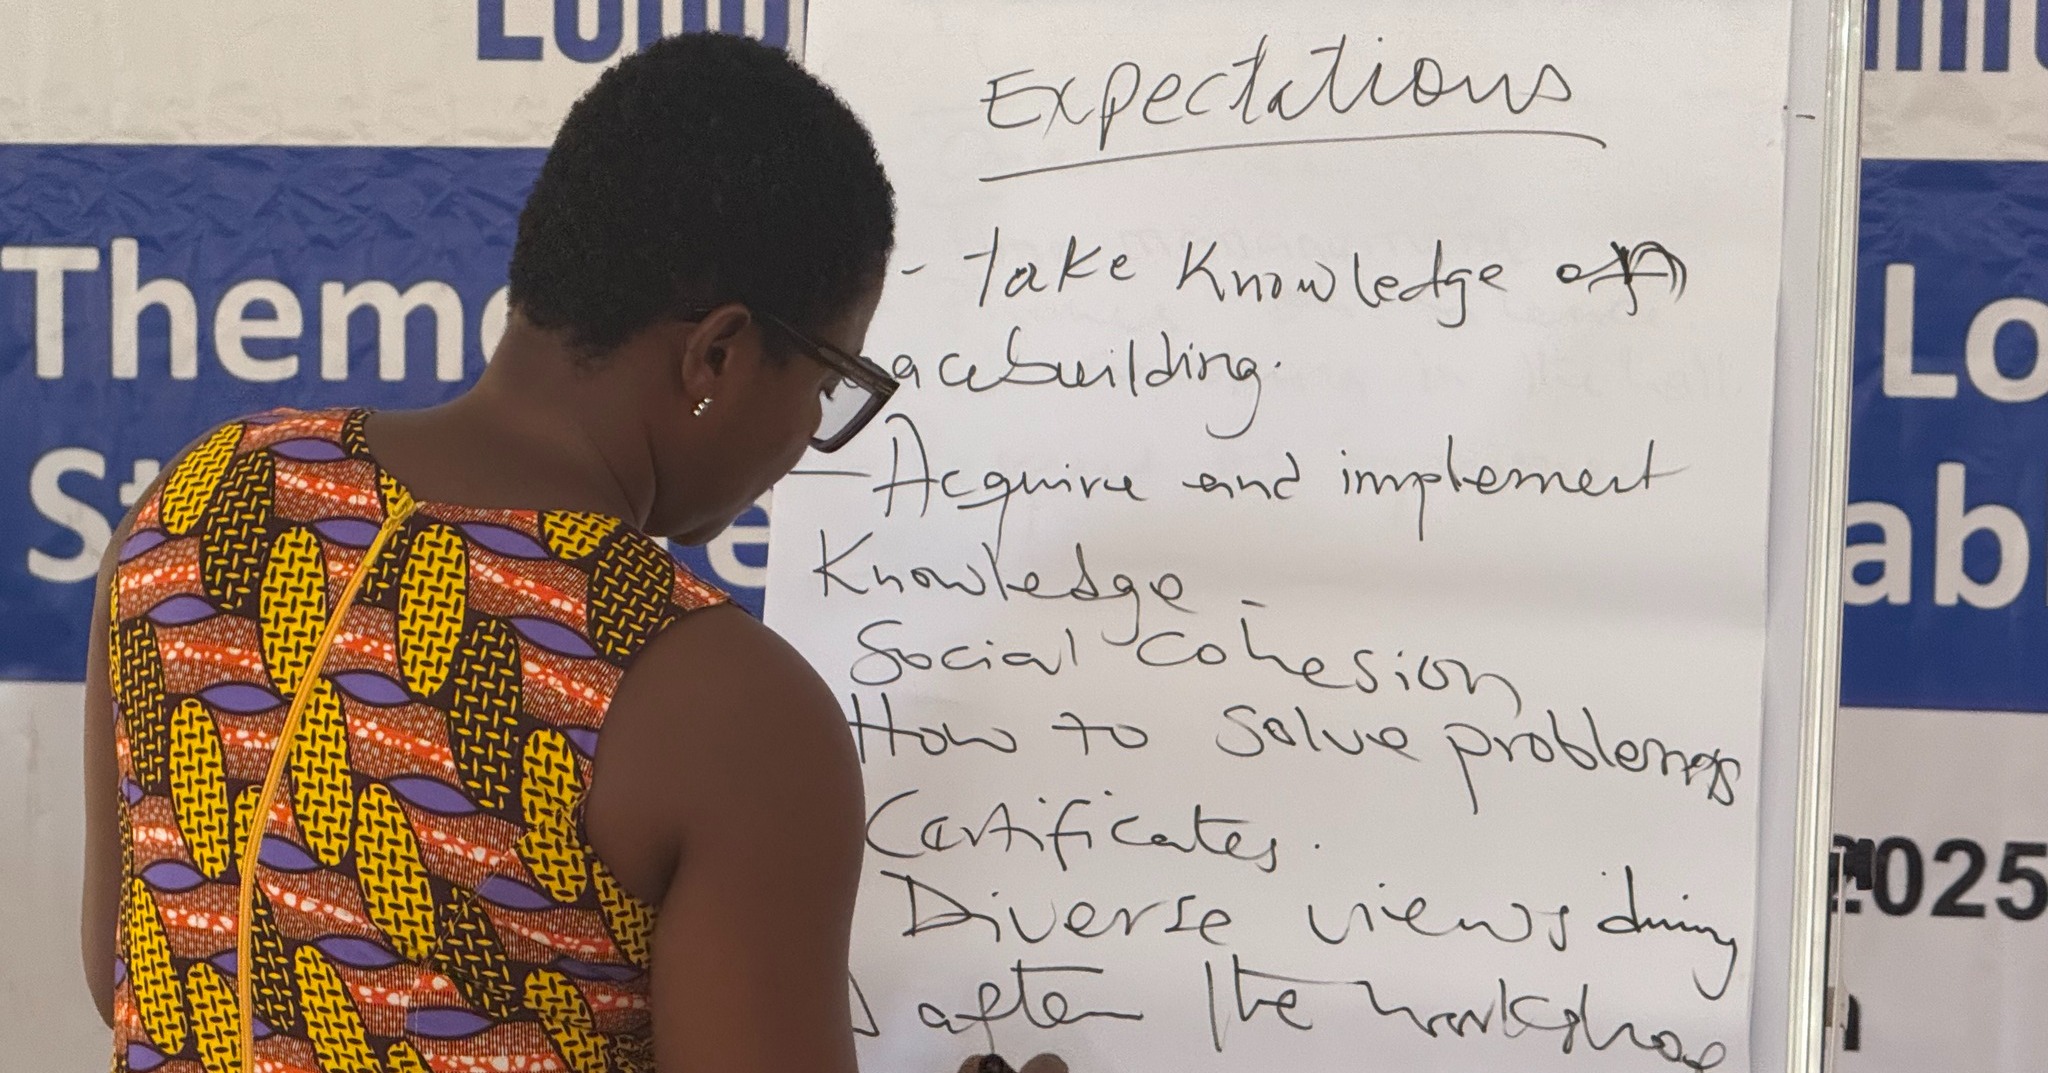 Expectations
- Take Knowledge on
acebuilding.
- Acquire and implement
Knowledge -
Social Cohesion
How to solve problems
Certificates.
Diverse views during
after the workshop
Theme
St
e
Lo
ab
2025